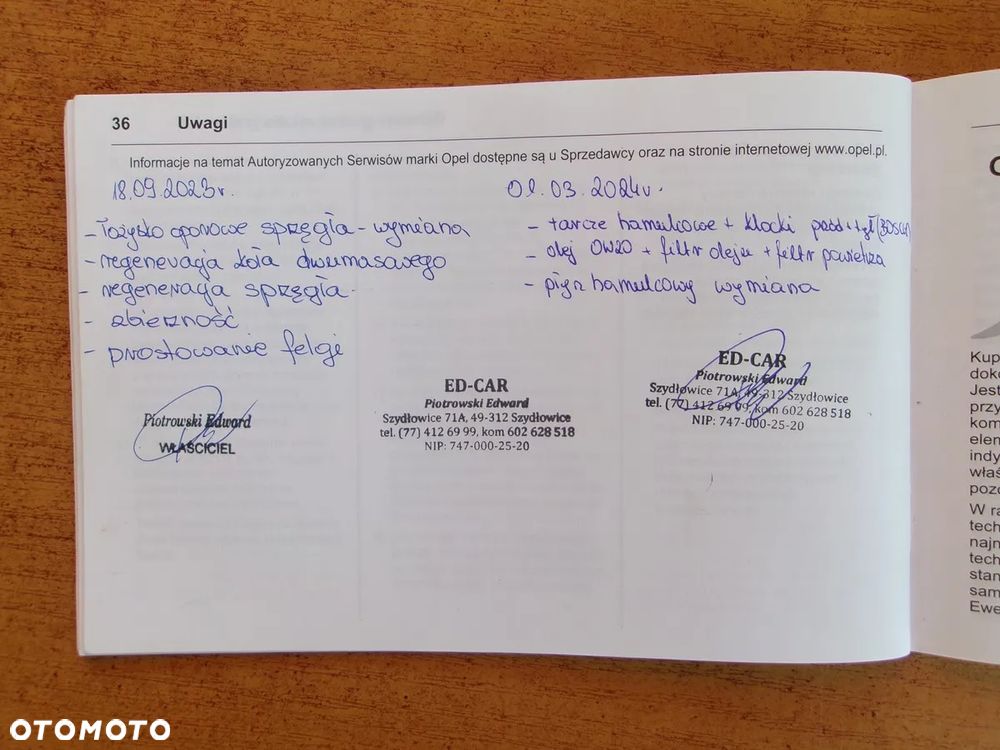 36 Uwagi
Informacje na temat Autoryzowanych Serwisów marki Opel dostępne są u Sprzedawcy oraz na stronie internetowej www.opel.pl.
18.09.2023r.
- łożysko oporowe sprzęgła - wymiana
- regeneracja koła dwumasowego
- regeneracja sprzęgła
- zbieżność
- prostowanie felgi
Piotrowski Edward
WŁAŚCICIEL
ED-CAR
Piotrowski Edward
Szydłowice 71A, 49-312 Szydłowice
tel. (77) 412 69 99, kom 602 628 518
NIP: 747-000-25-20
01.03.2024r.
- tarcze hamulcowe + klocki przód + tył (BOSCH)
- olej 0W20 + filtr oleju + filtr powietrza
- płyn hamulcowy wymiana
ED-CAR
Piotrowski Edward
Szydłowice 71A, 49-312 Szydłowice
tel. (77) 412 69 99, kom 602 628 518
NIP: 747-000-25-20
Kup
doko
Jest
przy
kom
elem
indy
właś
pozo
W ra
tech
najn
tech
stan
sam
Ewe
OTOMOTO